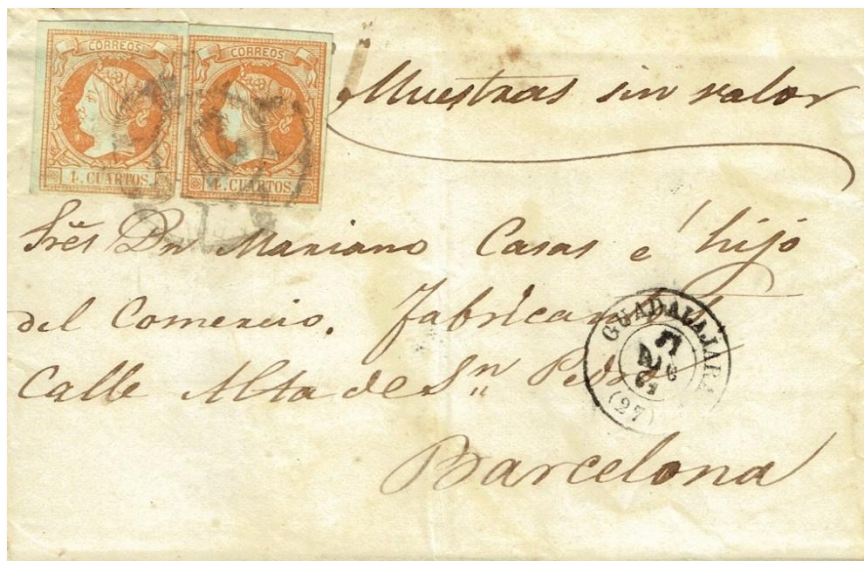 CORREOS CORREOS
4 CUARTOS 4 CUARTOS
Muestras sin valor
Sres Dn Mariano Casas e hijo
del Comercio. Fabricante
Calle Alta de Sn Pedro
GUADALAJARA
(27)
Barcelona